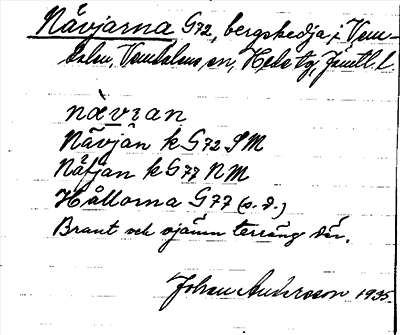 Nåvjarna G72, bergskedja i Vem-
dalen, Vemdalens sn, Hede tg, Jämtl. l.
nàvɪan
Nåvjan k G72 SM
Nåfjan k G77 NM
Hållorna G77 (s. d.)
Brant och ojämn terräng där.
Johan Andersson 1935.